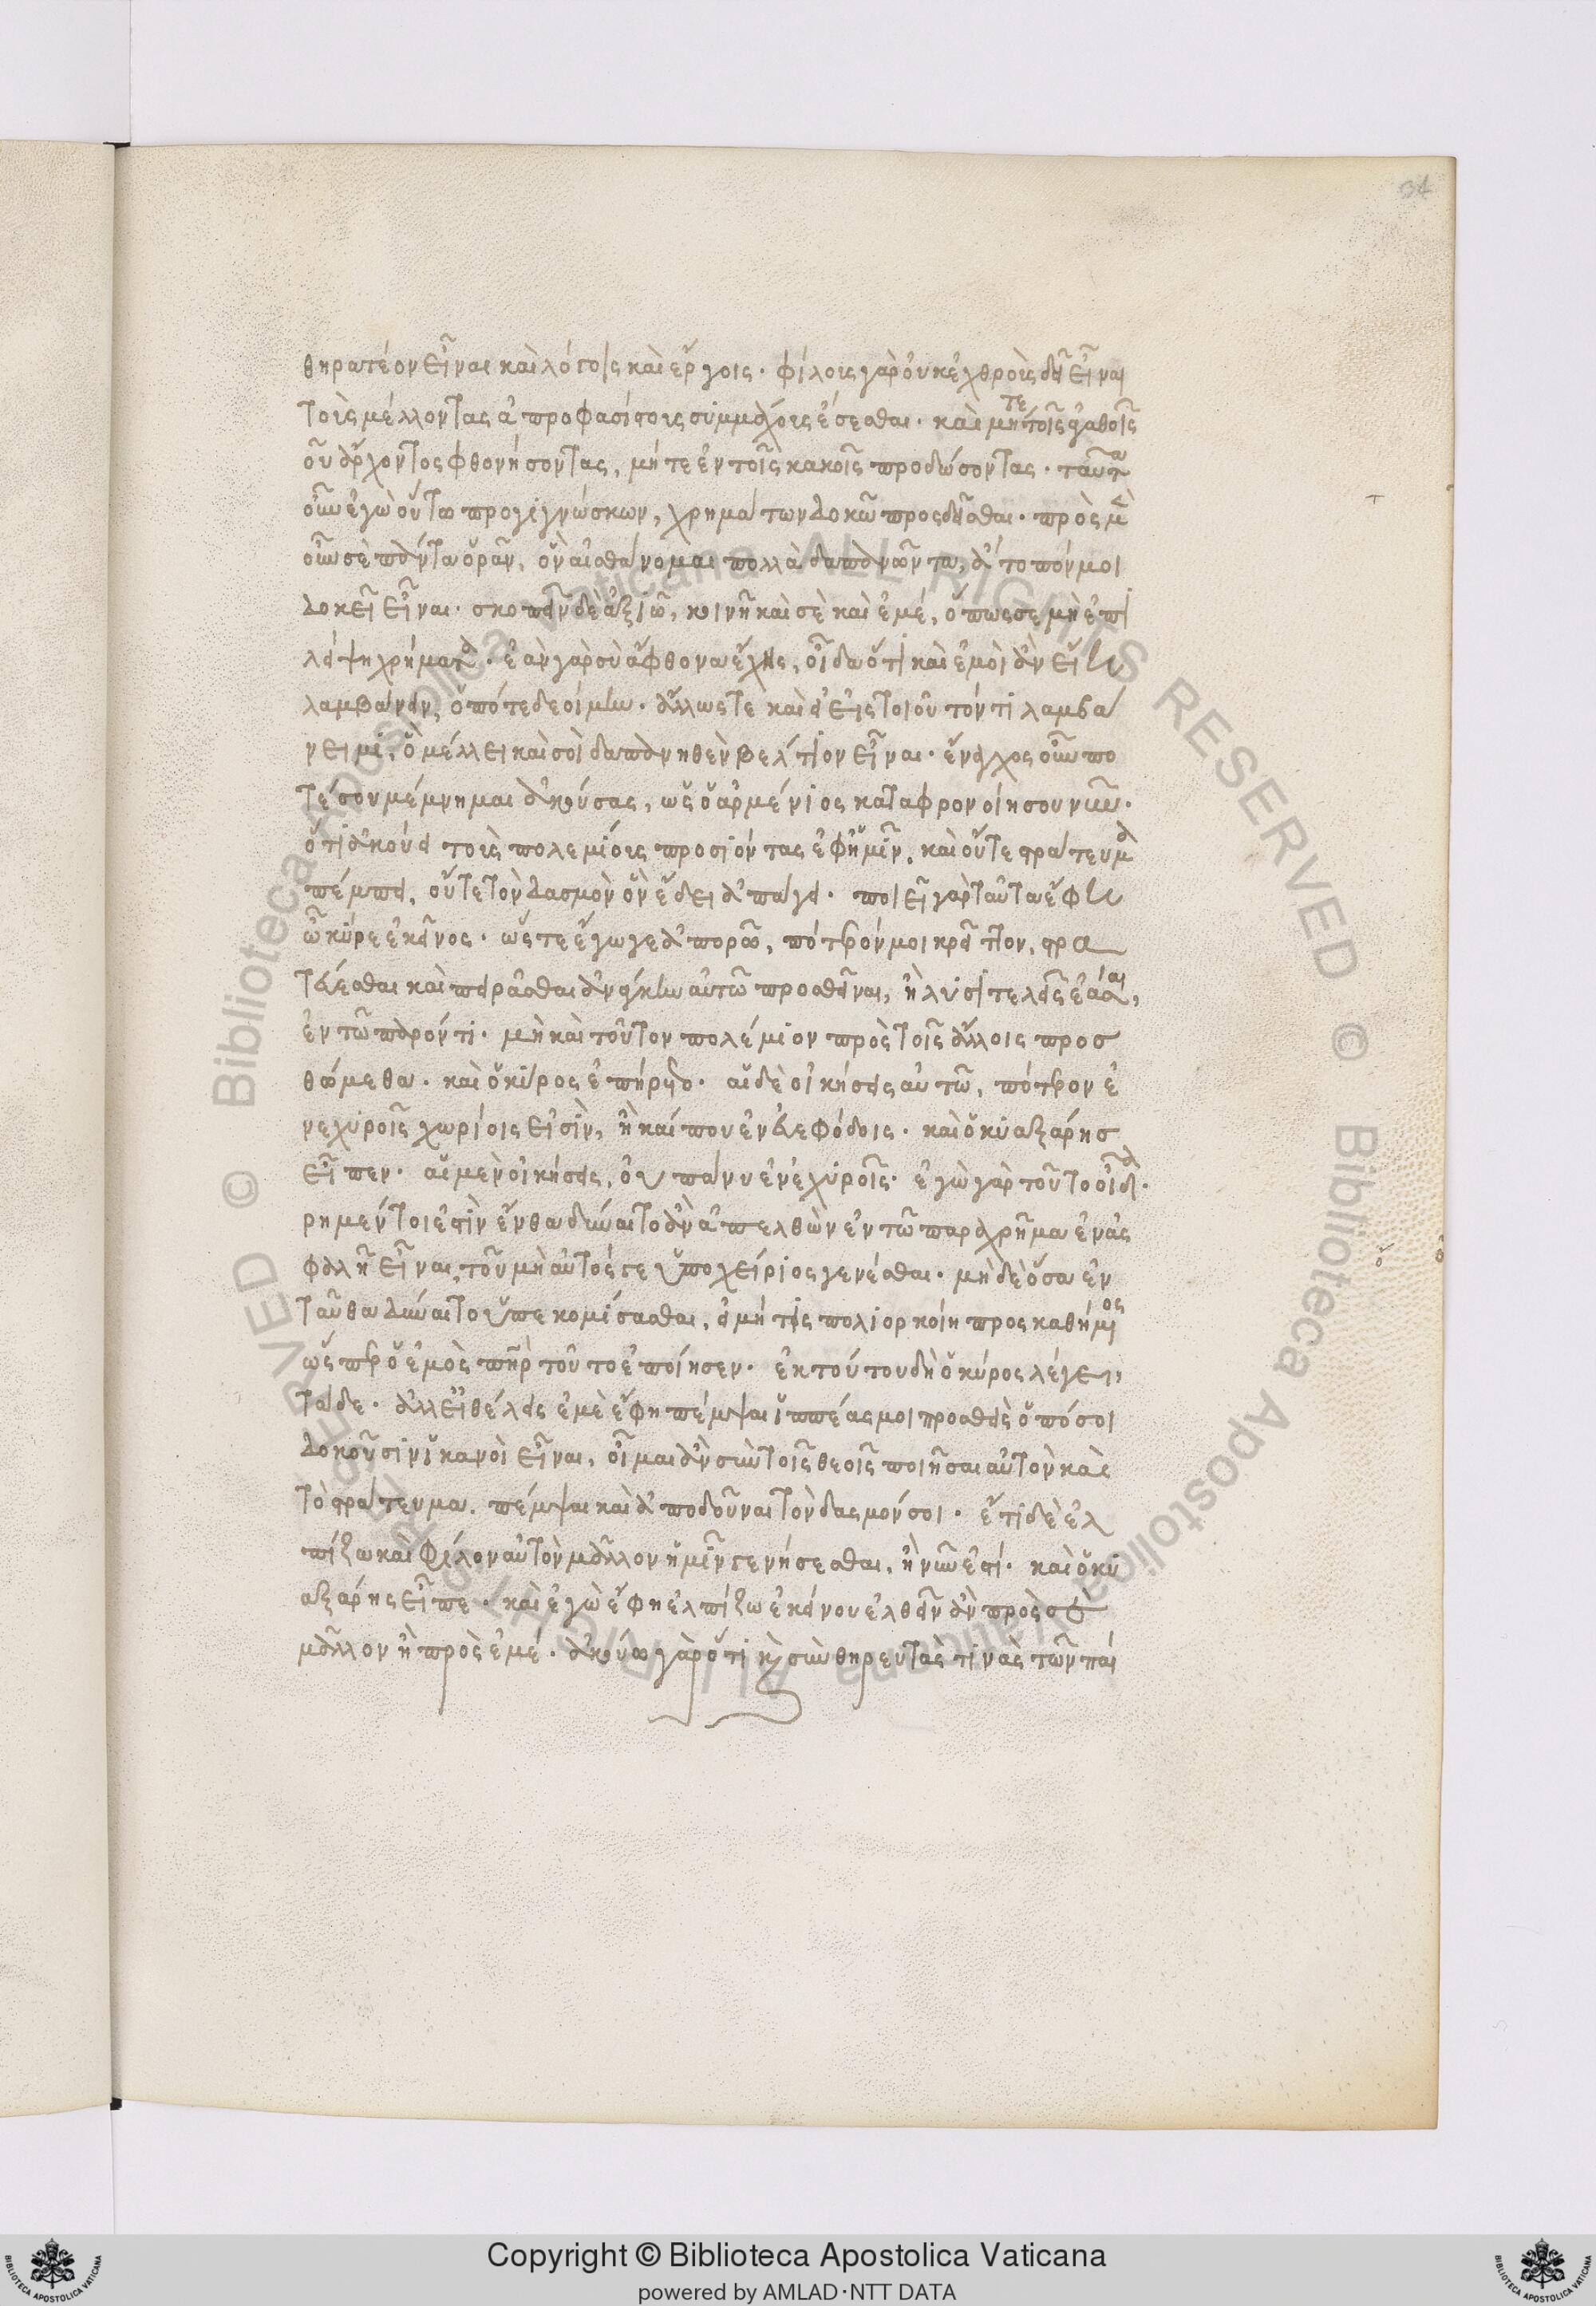 34
θηρατέον εἶναι καὶ λόγοις καὶ ἔργοις. φίλους γὰρ οὐκ ἐχθροὺς δεῖ εἶναι
τοὺς μέλλοντας ἀπροφασίστους συμμάχους ἔσεσθαι. καὶ μήτε τοῖς ἀγαθοῖς
τοῦ ἄρχοντος φθονήσοντας, μήτε ἐν τοῖς κακοῖς προδώσοντας. ταῦτα
οὖν ἐγὼ οὕτω προγιγνώσκων, χρημάτων δοκῶ προσδεῖσθαι. πρὸς μὲν
οὖν σὲ πάντα ὁρᾶν, ὃν αἰσθάνομαι πολλὰ δαπανῶντα, ἄτοπόν μοι
δοκεῖ εἶναι. σκοπεῖν δὲ ἀξιῶ, κοινῇ καὶ σὲ καὶ ἐμέ, ὅπως σε μὴ ἐπι
λείψῃ χρήματα. ἐὰν γὰρ σὺ ἄφθονα ἔχῃς, οἶδα ὅτι καὶ ἐμοὶ ἂν εἴη
λαμβάνειν, ὁπότε δεοίμην. ἄλλως τε καὶ εἰ εἰς τοιοῦτόν τι λαμβά
νοιμι, ὃ μέλλει καὶ σοὶ δαπανηθὲν βέλτιον εἶναι. ἔναγχος οὖν πο
τέ σου μέμνημαι ἀκούσας, ὡς ὁ ἀρμένιος καταφρονοίη σου νῦν.
ὅτι ἀκούει τοὺς πολεμίους προσιόντας ἐφ' ἡμῖν, καὶ οὔτε στράτευμα
πέμπει, οὔτε τὸν δασμὸν ὃν ἔδει ἀπάγει. ποιεῖ γὰρ ταῦτα ἔφη
ὦ κῦρε ἐκεῖνος. ὥστε ἔγωγε ἀπορῶ, πότερόν μοι κρεῖττον, στρα
τεύεσθαι καὶ πειρᾶσθαι ἀνάγκην αὐτῷ προσθεῖναι, ἢ λυσιτελεῖς ἐᾶσαι,
ἐν τῷ παρόντι. μὴ καὶ τοῦτον πολέμιον πρὸς τοῖς ἄλλοις προσ
θώμεθα. καὶ ὁ κῦρος ἐπήρετο. αἱ δὲ οἰκήσεις αὐτῷ, πότερον ἐ
ν ἐχυροῖς χωρίοις εἰσὶν, ἢ καί που ἐν εὐεφόδοις. καὶ ὁ κυαξάρης
εἶπεν. αἱ μὲν οἰκήσεις, οὐ πάνυ ἐν ἐχυροῖς. ἐγὼ γὰρ τοῦτο οἶδα.
ρη μέντοι ἐστὶν ἔνθα δύναιτο ἂν ἀπελθὼν ἐν τῷ παραχρῆμα ἐν ἀσ
φαλεῖ εἶναι, τοῦ μὴ αὐτός γε ὑποχείριος γενέσθαι. μηδὲ ὅσα ἐν
ταῦθα δύναιτο ὑπεκομίσασθαι, εἰ μή τις πολιορκοίη προσκαθήμενος
ὥσπερ ὁ ἐμὸς πατὴρ τοῦτο ἐποίησεν. ἐκ τούτου δὴ ὁ κῦρος λέγει,
τάδε. ἀλλ' εἰ θέλεις ἐμὲ ἔφη πέμψαι ἱππέας μοι προσθεὶς ὁπόσοι
δοκοῦσιν ἱκανοὶ εἶναι, οἶμαι ἂν σὺν τοῖς θεοῖς ποιῆσαι αὐτὸν καὶ
τὸ στράτευμα πέμψαι καὶ ἀποδοῦναι τὸν δασμόν σοι. ἔτι δὲ ἐλ
πίζω καὶ φίλον αὐτὸν μᾶλλον ἡμῖν γενήσεσθαι, ἢ νῦν ἐστί. καὶ ὁ κυ
αξάρης εἶπε. καὶ ἐγὼ ἔφη ἐλπίζω ἐκεῖνον ἐλθεῖν ἂν πρὸς σὲ
μᾶλλον ἢ πρὸς ἐμέ. ἀκούω γὰρ ὅτι καὶ συνθηρευτάς τινας τῶν παί
© Biblioteca Apostolica Vaticana ALL RIGHTS RESERVED
Copyright © Biblioteca Apostolica Vaticana
powered by AMLAD·NTT DATA
BIBLIOTECA APOSTOLICA VATICANA
BIBLIOTECA APOSTOLICA VATICANA